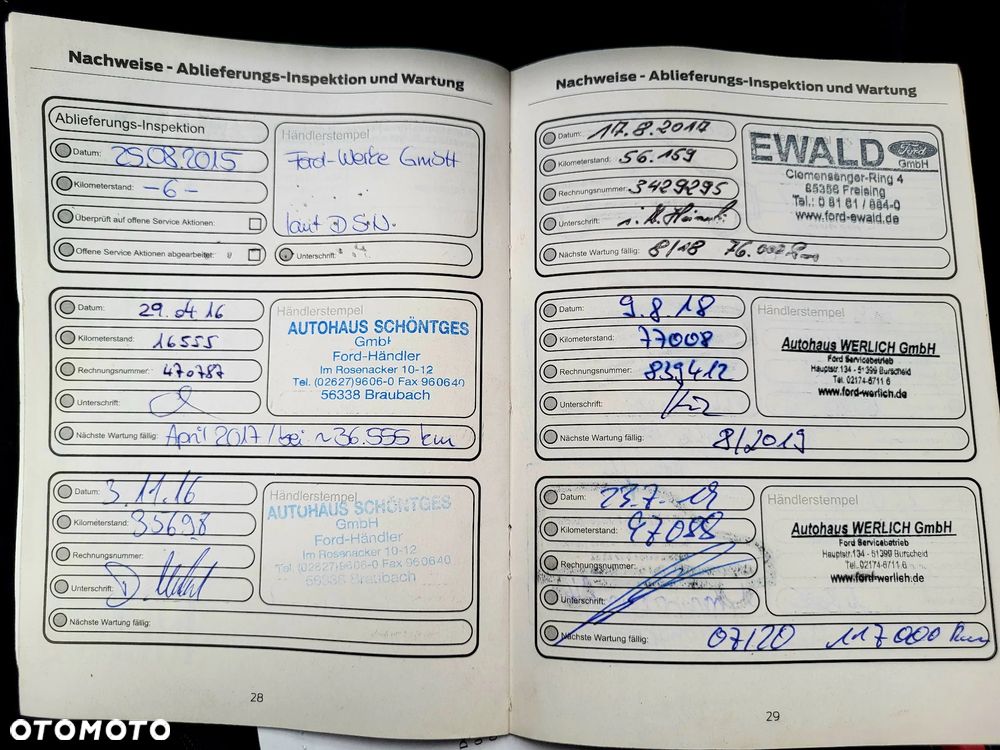 Nachweise - Ablieferungs-Inspektion und Wartung
Ablieferungs-Inspektion
Datum: 25.08.2015
Kilometerstand: -6-
Überprüft auf offene Service Aktionen:
Offene Service Aktionen abgearbeitet:
Händlerstempel
Ford-Werke GmbH
laut DSN.
Unterschrift:
Datum: 29.04.16
Kilometerstand: 16555
Rechnungsnummer: 470787
Unterschrift:
Händlerstempel
AUTOHAUS SCHÖNTGES
GmbH
Ford-Händler
Im Rosenacker 10-12
Tel. (02627)9606-0 Fax 960640
56338 Braubach
Nächste Wartung fällig: April 2017/bei ~36.555 km
Datum: 3.11.16
Kilometerstand: 35698
Rechnungsnummer:
Unterschrift:
Händlerstempel
AUTOHAUS SCHÖNTGES
GmbH
Ford-Händler
Im Rosenacker 10-12
Tel. (02627)9606-0 Fax 960640
56338 Braubach
Nächste Wartung fällig:
28
Nachweise - Ablieferungs-Inspektion und Wartung
Datum: 17.8.2017
Kilometerstand: 56.159
Rechnungsnummer: 3429295
Unterschrift:
EWALD Ford
GmbH
Clemensänger-Ring 4
85356 Freising
Tel.: 0 81 61 / 884-0
www.ford-ewald.de
Nächste Wartung fällig: 8/18 76.000 km
Datum: 9.8.18
Kilometerstand: 77008
Rechnungsnummer: 839412
Unterschrift:
Händlerstempel
Autohaus WERLICH GmbH
Ford Servicebetrieb
Hauptstr.134 - 51399 Burscheid
Tel. 02174-6711 6
www.ford-werlich.de
Nächste Wartung fällig: 8/2019
Datum: 23.7.19
Kilometerstand: 97088
Rechnungsnummer:
Unterschrift:
Händlerstempel
Autohaus WERLICH GmbH
Ford Servicebetrieb
Hauptstr.134 - 51399 Burscheid
Tel. 02174-6711 6
www.ford-werlich.de
Nächste Wartung fällig: 07/20 117000 km
29
OTOMOTO